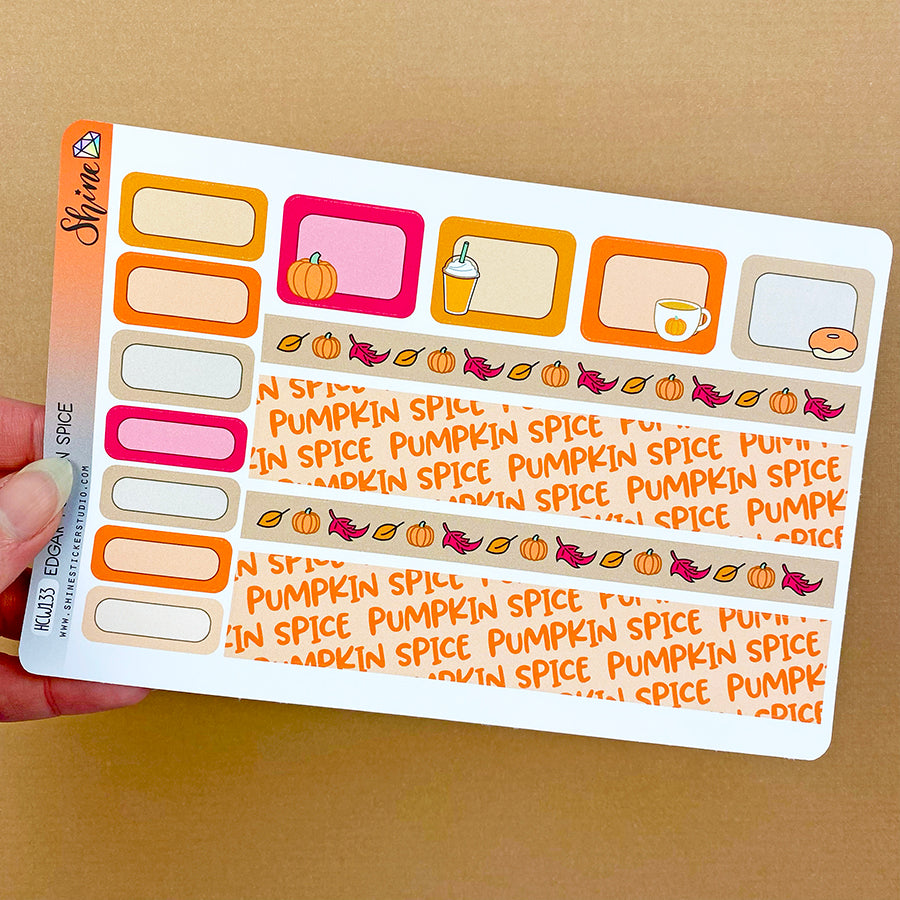 Shine
HCW133 EDGAR IN SPICE
WWW.SHINESTICKERSTUDIO.COM
IN SPICE PUMPKIN SPICE PUM
PUMPKIN SPICE PUMPKIN SPICE PUMPKIN SPICE PUM
IN SPICE PUMPKIN SPICE PUMPKIN SPICE PUMPKIN SPICE
PUMPKIN SPICE PUMPKIN SPICE PUMPKIN SPICE
IN SPICE PUMPKIN SPICE PUM
PUMPKIN SPICE PUMPKIN SPICE PUMPKIN SPICE PUM
IN SPICE PUMPKIN SPICE PUMPKIN SPICE PUMPKIN SPICE
PUMPKIN SPICE PUMPKIN SPICE PUMPK
IN SPICE